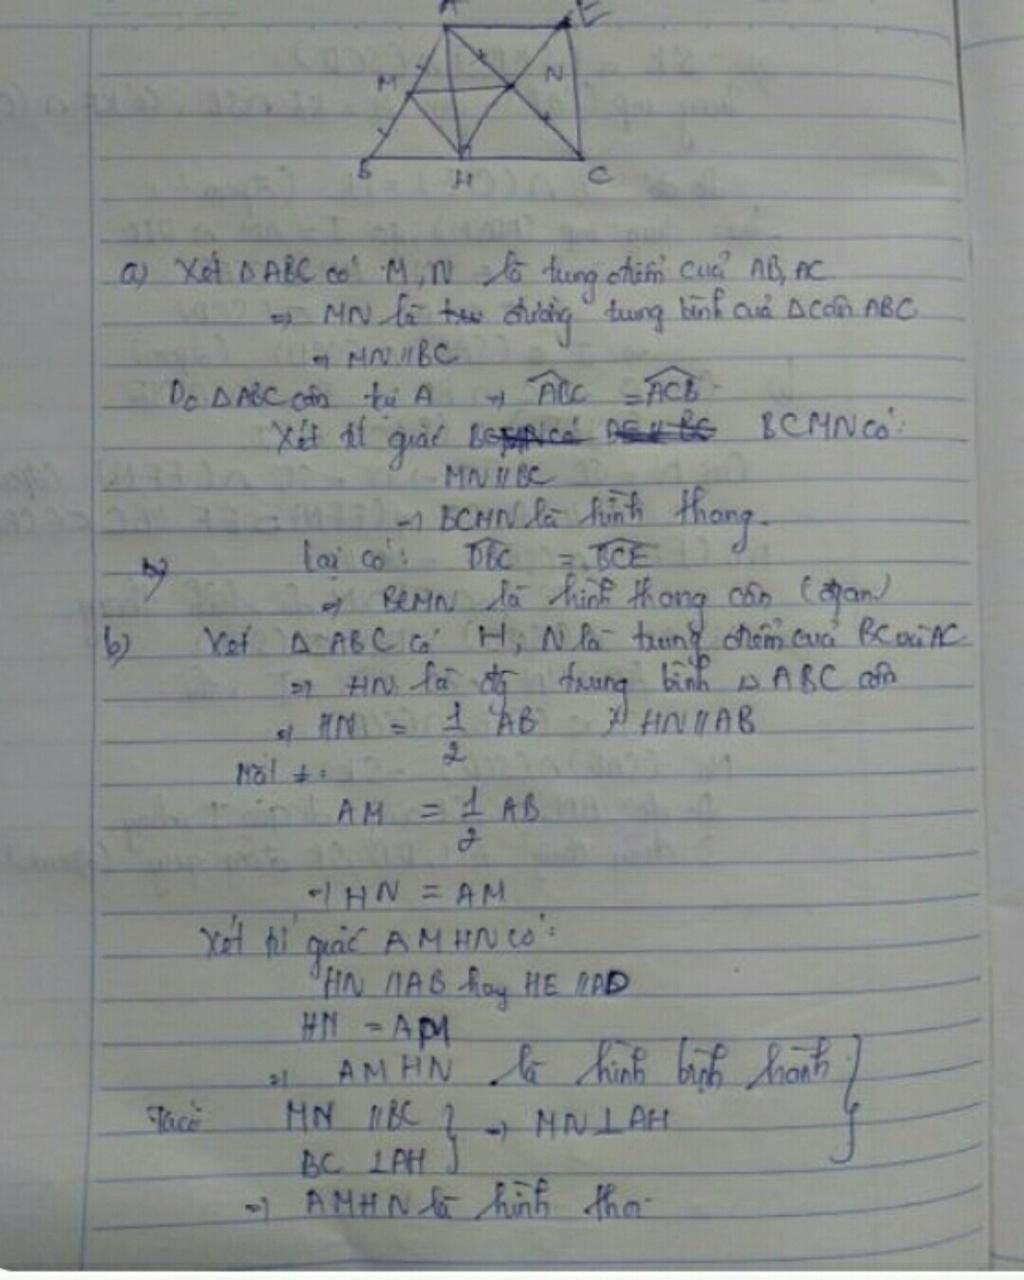 A E
M N
B H C
a) Xét ΔABC có M, N là tung điểm cuả AB, AC
=> MN là đường tung bình cuả Δ cân ABC
=> MN // BC
Do ΔABC cân tại A => ABC = ACB
Xét tứ giác BCMN có:
MN // BC
=> BCMN là hình thang.
Lại có: DBC = BCE
=> BCMN là hình thang cân (đpcm)
b) Xét ΔABC có H, N là trung điểm cuả BC và AC
=> HN là đg trung bình Δ ABC cân
=> HN = 1/2 AB HN // AB
Mà
AM = 1/2 AB
=> HN = AM
Xét tứ giác AMHN có:
HN // AB hay HE // AD
HN = AM
=> AMHN là hình bình hành }
Ta có MN // BC } => MN ⊥ AH
BC ⊥ AH
=> AMHN là hình thoi